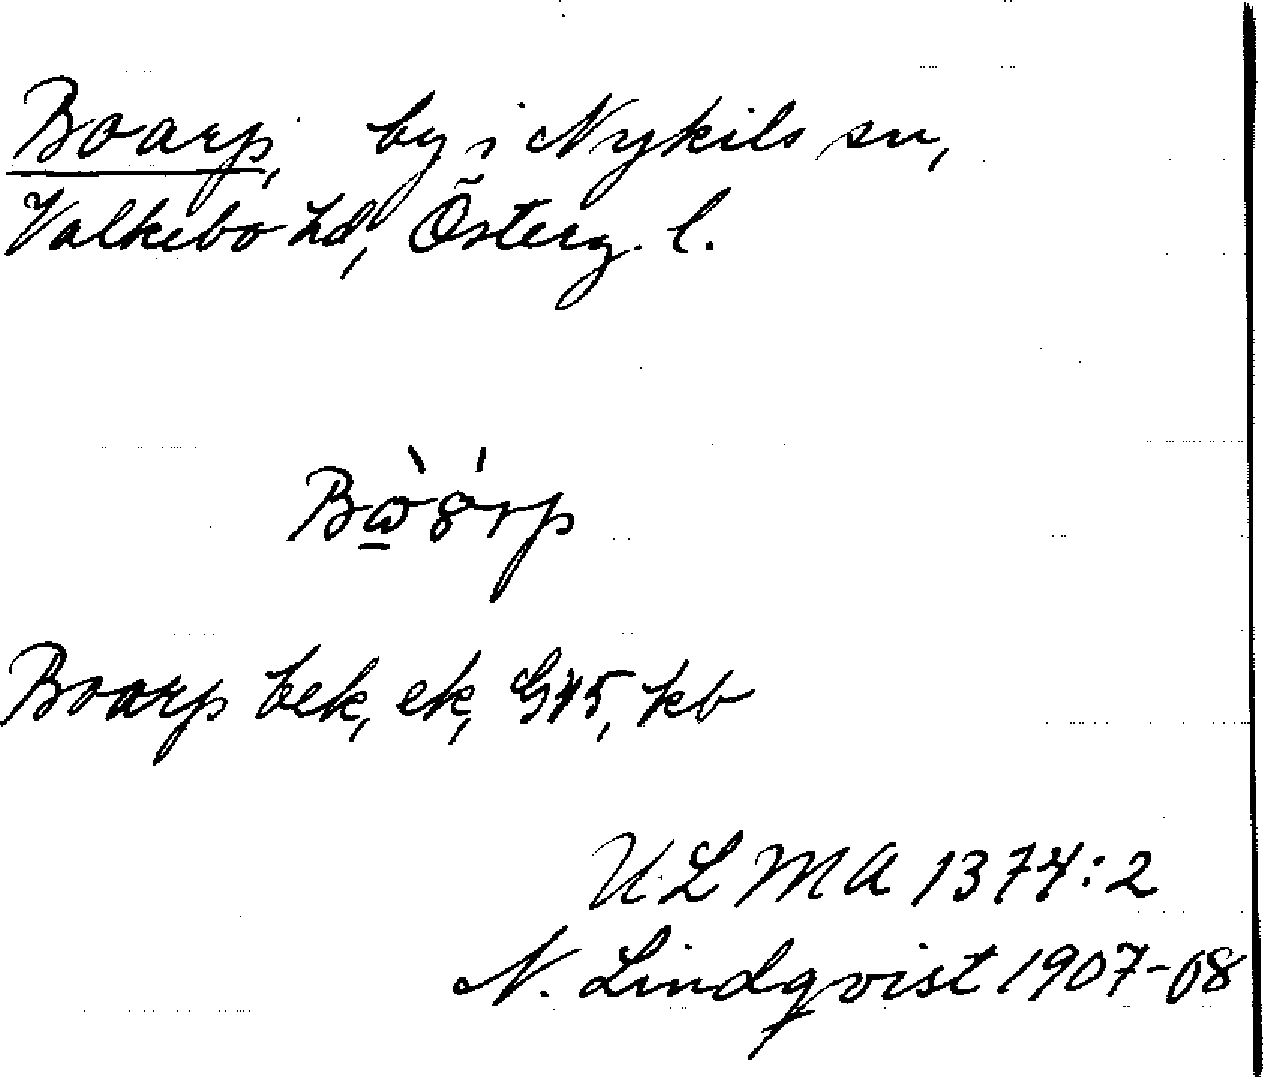 Boarp, by i Nykils sn,
Valkebo hd, Österg. l.
Boarp bek, ek, G45, kb
ULMA 1374:2
N. Lindqvist 1907-08